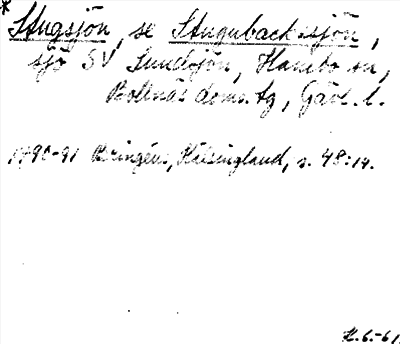 * Stugsjön, se Stugubackssjön,
sjö SV Sundsjön, Hanebo sn,
Bollnäs doms.tg, Gävl. l.
1790-91 Bringéus, Hälsingland, s. 48:14.